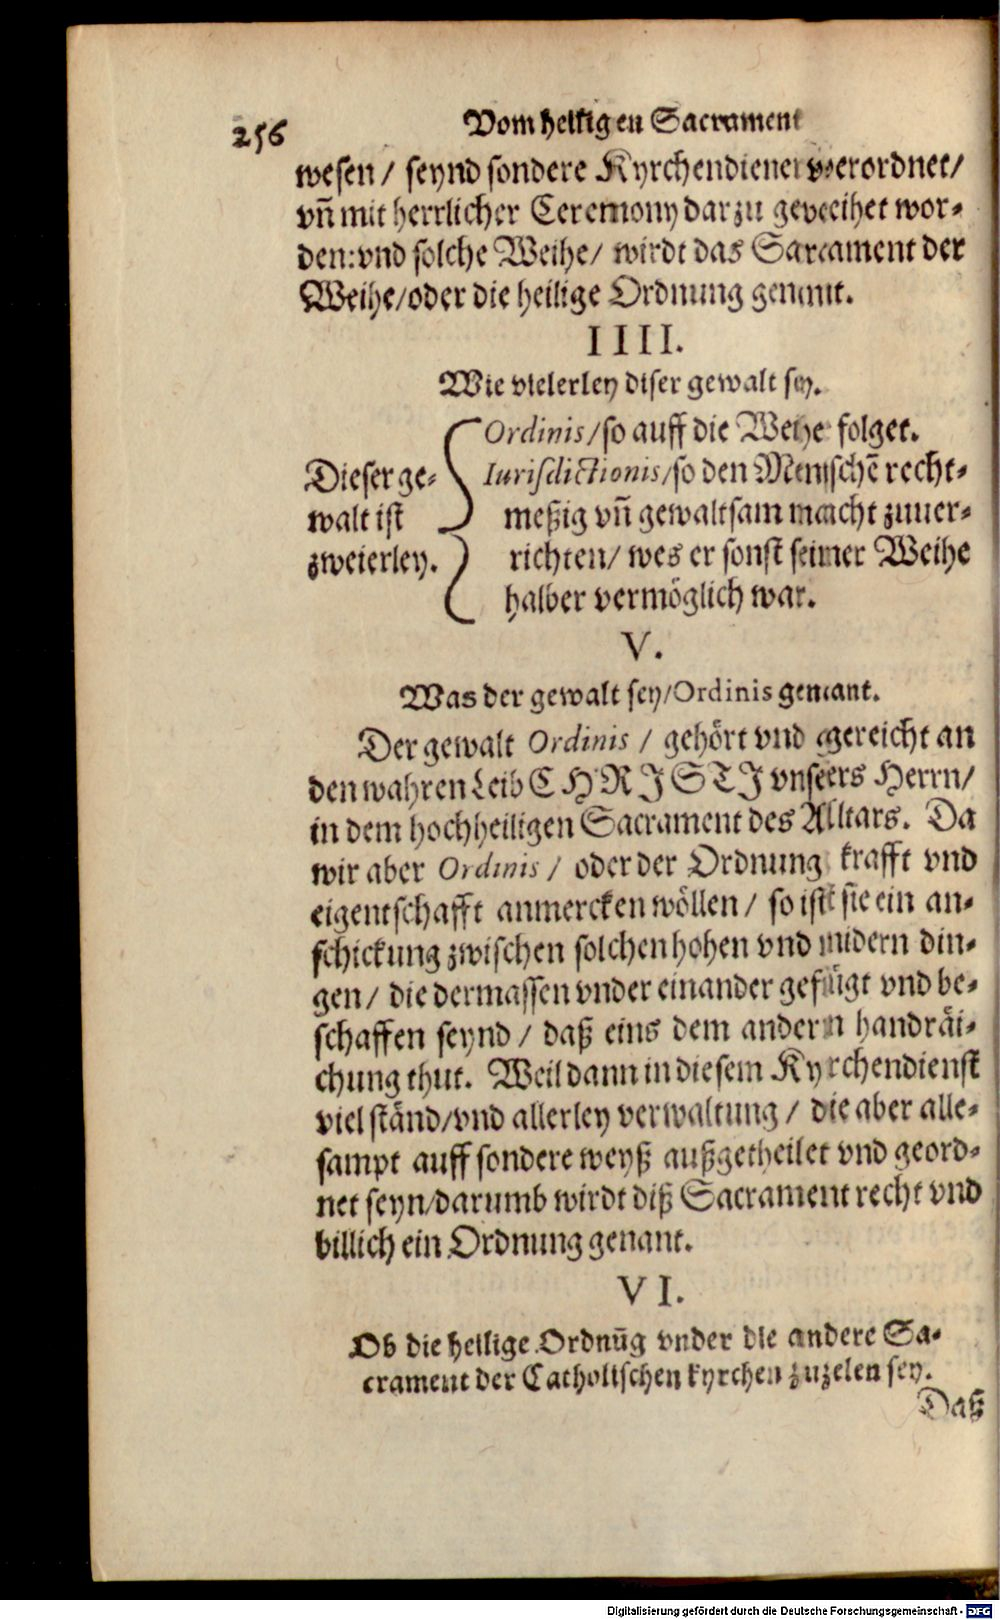 256
Vom heiligen Sacrament
wesen / seynd sondere Kyrchendiener verordnet /
vñ mit herrlicher Ceremony darzu geweihet wor⸗
den: vnd solche Weihe / wirdt das Sacrament der
Weihe / oder die heilige Ordnung genennt.
IIII.
Wie vielerley diser gewalt sey.
Dieser ge⸗
walt ist
zweierley.
Ordinis / so auff die Weihe folget.
Iurisdictionis / so den Menschẽ recht⸗
meßig vñ gewaltsam macht zuuer⸗
richten / wes er sonst seiner Weihe
halber vermöglich war.
V.
Was der gewalt sey / Ordinis genant.
Der gewalt Ordinis / gehört vnd gereicht an
den wahren Leib CHRISTI vnsers Herrn /
in dem hochheiligen Sacrament des Altars. Da
wir aber Ordinis / oder der Ordnung krafft vnd
eigentschafft anmercken wöllen / so ist sie ein an⸗
schickung zwischen solchen hohen vnd nidern din⸗
gen / die dermassen vnder einander gefügt vnd be⸗
schaffen seynd / daß eins dem andern handräi⸗
chung thut. Weil dann in diesem Kyrchendienst
viel ständ / vnd allerley verwaltung / die aber alle⸗
sampt auff sondere weyß außgetheilet vnd geord⸗
net seyn / darumb wirdt diß Sacrament recht vnd
billich ein Ordnung genant.
VI.
Ob die heilige Ordnũg vnder die andere Sa⸗
crament der Catholischen kyrchen zuzelen sey.
Daß
Digitalisierung gefördert durch die Deutsche Forschungsgemeinschaft - DFG